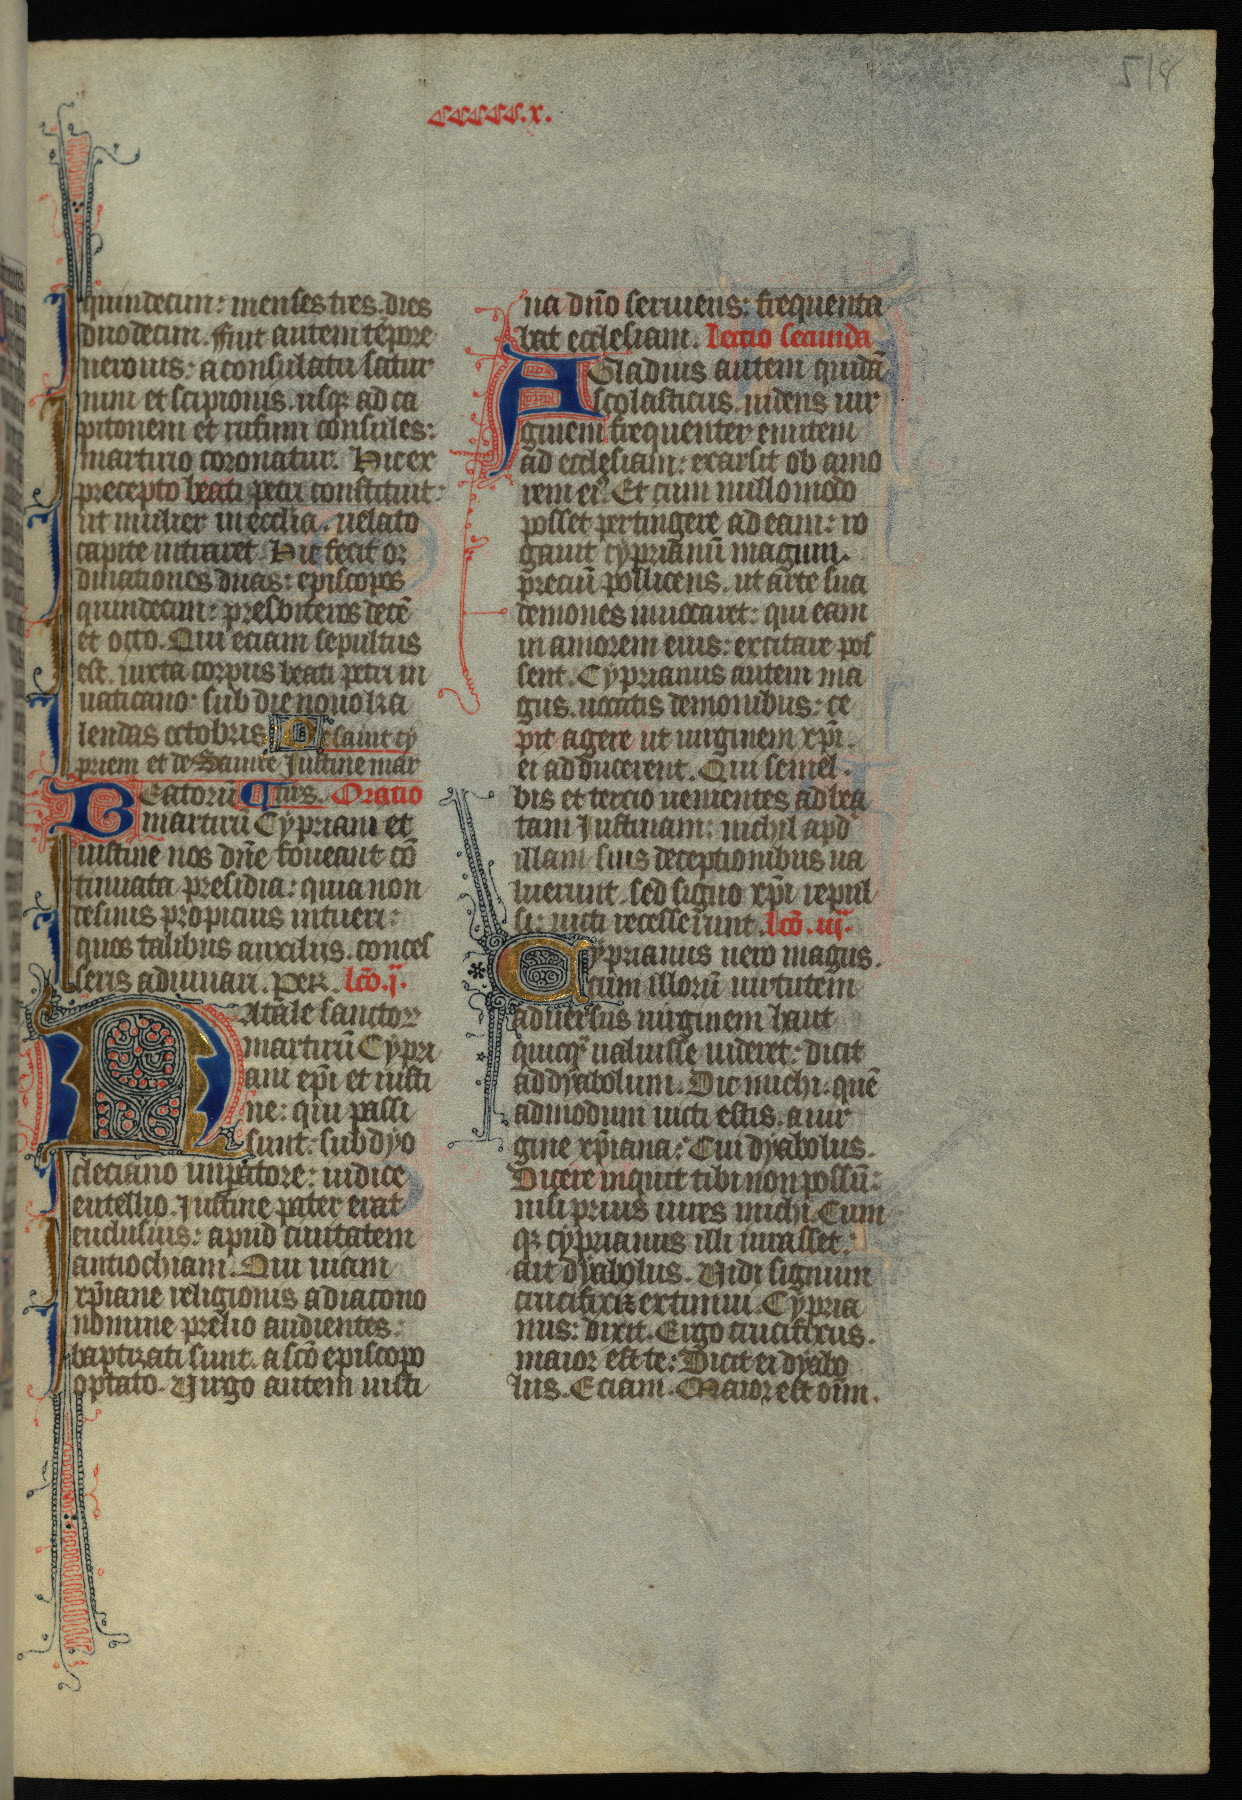 518
ccccc.x.
quindecim: menses tres. dies
duodecim. Fuit autem tẽpore
neronis: a consulatu satur
nini et scipionis. usqꝫ ad ca
pitonem et rufinu consules:
martirio coronatur. Hic ex
precepto beati petri constituit:
ut mulier in eccl̃ia. uelato
capite intraret. Hic fecit or
dinationes duas: episcopos
quindecim: presbiteros decẽ
et octo. Qui eciam sepultus
est. iuxta corpus beati petri in
uaticano: sub die nono ka
lendas octobris. De saint cy
priem et de Sainte Justine mar
tirs. Oratio
Beatorũ
martirũ Cypriani et
iustine nos dñe foueant cõ
tinuata presidia: quia non
desinis propicius intueri:
quos talibus auxiliis. conces
seris adiuuari. Per. lcõ. j.ª
Natale sanctoꝝ
martirũ Cypri
ani ep̃i et iusti
ne: qui passi
sunt: sub dyo
cleciano inp̃atore: iudice
eutellio. Justine pater erat
eudusius: apud ciuitatem
antiochiam. Qui uiam
xp̃iane religionis a diacono
nomine prelio audientes:
baptizati sunt. a sc̃o episcopo
optato. Uirgo autem iusti
na dño seruiens: frequenta
bat ecclesiam. Lectio secunda
AGladius autem quidã
scolasticus. uidens uir
ginem frequenter euntem
ad ecclesiam: exarsit ob amo
rem eiꝰ. Et cum nullo modo
posset pertingere ad eam: ro
gauit cyprianũ magum.
preciũ pollicens. ut arte sua
demones inuocaret: qui eam
in amorem eius: excitare pos
sent. Cyprianus autem ma
gus. uocatis demonibus: ce
pit agere ut uirginem xp̃i.
ei adducerent. Qui semel.
bis et tercio uenientes ad bea
tam Justinam: nichil apd̾
illam suis deceptionibus ua
luerunt. sed signo xp̃i repul
si: uicti recesserunt. lcõ. iij.ª
Cyprianus uero magus.
cum illorũ uirtutem
aduersus uirginem haut
quicqͣ ualuisse uideret: dicit
ad dyabolum. Dic michi. quẽ
admodum uicti estis. a uir
gine xp̃iana: Cui dyabolus.
Dicere inquit tibi non possũ:
nisi prius iures michi. Cum
qꝫ cyprianus illi iurasset:
ait dyabolus. Uidi signum
crucifixi: ⁊ extimui. Cypria
nus: dixit. Ergo crucifixus.
maior est te: Dicit ei dyabo
lus. Eciam. Maior est oĩm.